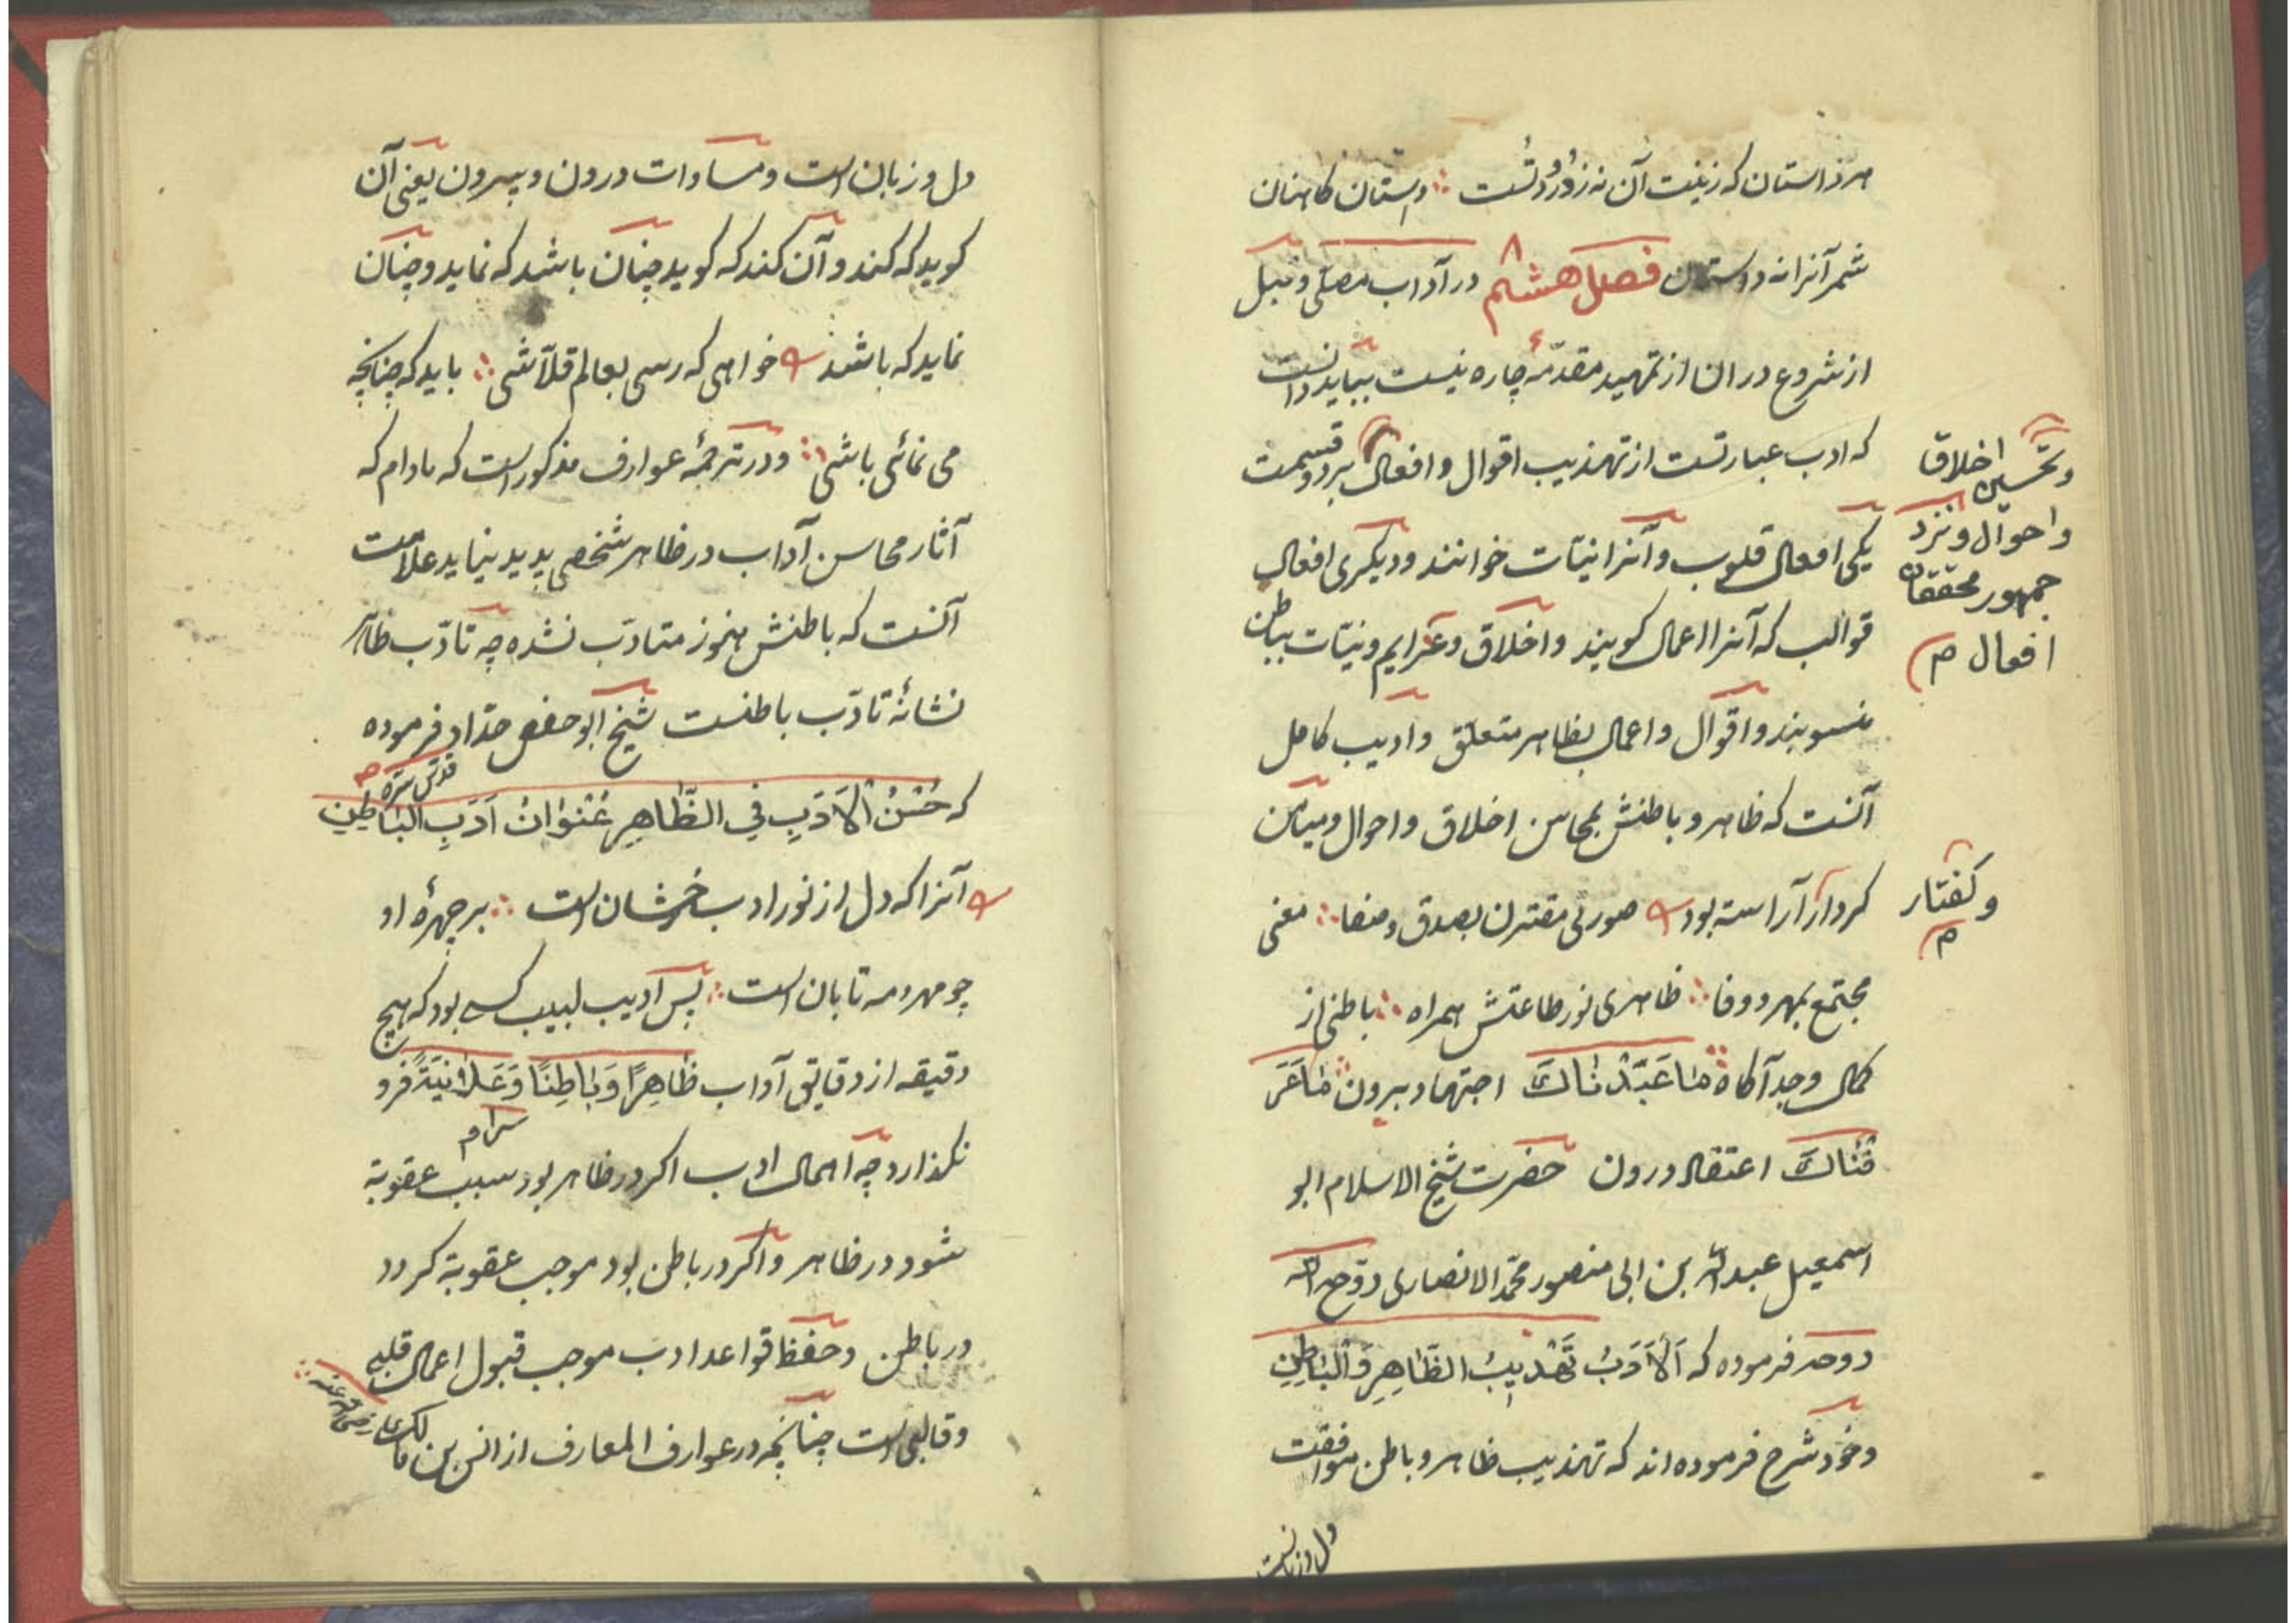 هر ز استان که زینت آن نه ز رو درتست ∴ داستان کاهنان
شمر آنرا نه داستان فصل هشتم در آداب مصلی و قبل
از شروع در ان از تمهید مقدّمهٔ چاره نیست بباید دانست
که ادب عبارتست از تهذیب اقوال و افعال بر دو قسمت
وتحسین اخلاق
واحوال ونزد
جمهور محققان
افعال م
یکی افعال قلوب و آنرا نیّات خوانند و دیکری افعال
قوالب که آنرا اعمال کویند و اخلاق و عزایم و نیّات بباطن
منسوبند و اقوال و اعمال بظاهر متعلق و ادیب کامل
آنست که ظاهر و باطنش بمحاسن اخلاق و احوال و میامن
کردار آراسته بود صورتی مقترن بصدق و صفا ∴ معنی
وکفتار
م
مجتمع بمهر و وفا ∴ ظاهری نور طاعتش همراه ∴ باطنی از
کمال وجد آکاه ∴ مَا عَبَدْنَاكَ اجتهاد بیرون ∴ مَا عَرَ
فْنَاكَ اعتقاد درون حضرت شیخ الاسلام ابو
اسمعیل عبد الله بن ابی منصور محمّد الانصاری روّح الله
روحه فرموده که اَلْاَدَبُ تَهْذِیبُ الظَّاهِرِ وَالْبَاطِنِ
و خود شرح فرموده اند که تهذیب ظاهر و باطن موافقت
دل و زبانست
دل و زبان است و مساوات درون و بیرون یعنی آن
کوید که کند و آن کند که کوید چنان باشد که نماید و چنان
نماید که باشد خواهی که رسی بعالم قلّاشی ∴ باید که چنانچه
می نمائی باشی ∴ و در ترجمهٔ عوارف مذکور است که مادام که
آثار محاسن آداب در ظاهر شخصی پدید نیاید علامت
آنست که باطنش هنوز متادّب نشده چه تادّب ظاهر
نشانهٔ تادّب باطنست شیخ ابو حفص حدّاد فرموده
قدّس سرّه
که حُسْنُ الْاَدَبِ فِي الظَّاهِرِ عُنْوَانُ اَدَبِ الْبَاطِنِ
آنرا که دل از نور ادب رخشان است ∴ بر چهرهٔ او
چو مهر و مه تابان است ∴ پس ادیب لبیب کسی بود که هیچ
دقیقه از دقایق آداب ظَاهِرًا وَبَاطِنًا وَعَلَانِیَةً فرو
سرا م
نکذارد چه اهمال ادب اکر در ظاهر بود سبب عقوبة
شود در ظاهر و اکر در باطن بود موجب عقوبة کردد
در باطن و حفظ قواعد ادب موجب قبول اعمال قلبی
و قالبی است چنانچه در عوارف المعارف از انس بن مالک
رضی الله عنه